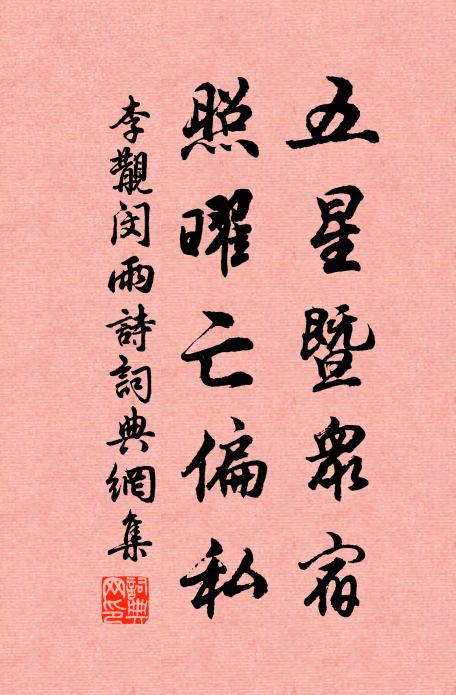 五星暨衆宿
照曜亡偏私
李覯閔雨詩詞典網集
詞典網印